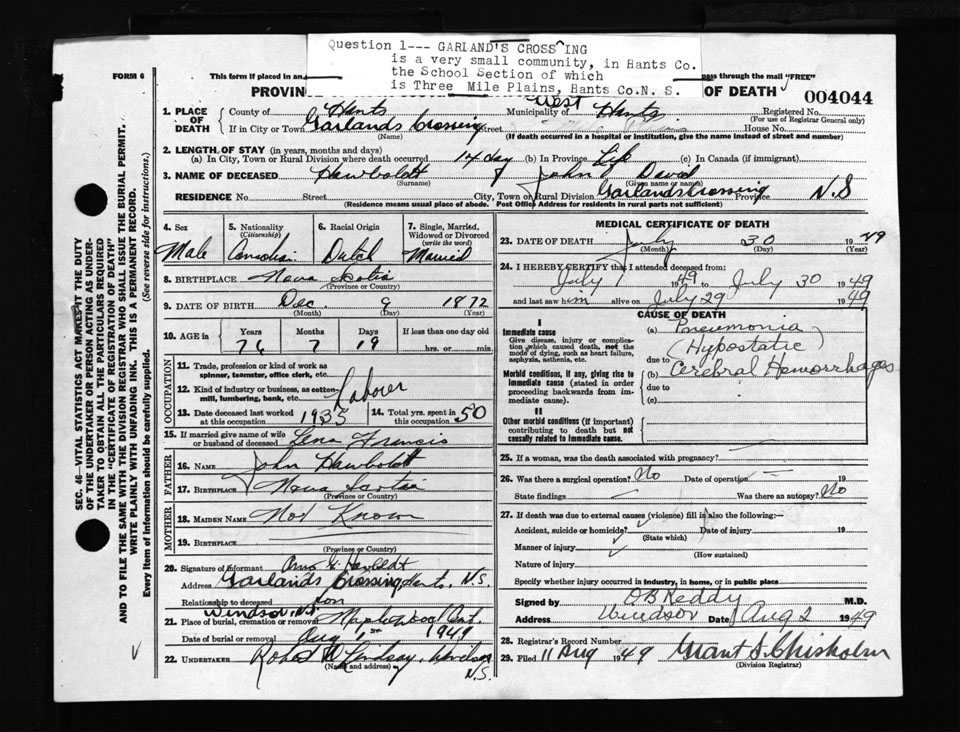 Question 1--- GARLAND'S CROSS^ING
is a very small community, in Hants Co.
the School Section of which
is Three Mile Plains, Hants Co.N. S.
FORM 6
This form if placed in an
pass through the mail "FREE"
PROVIN
OF DEATH
004044
1. PLACE OF DEATH
County of Hants
Municipality of West Hants
Registered No.
(For use of Registrar General only)
If in City or Town Garlands Crossing Street
House No.
(Name)
(If death occurred in a hospital or institution, give the name instead of street and number)
2. LENGTH OF STAY (in years, months and days)
(a) In City, Town or Rural Division where death occurred 14 day (b) In Province Life (c) In Canada (if immigrant)
3. NAME OF DECEASED Hawboldt John David
(Surname) (Given name or names)
RESIDENCE No. Street City, Town or Rural Division Garlands Crossing Province N.S
(Residence means usual place of abode. Post Office Address for residents in rural parts not sufficient)
4. Sex Male
5. Nationality (Citizenship) Canadian
6. Racial Origin Dutch
7. Single, Married, Widowed or Divorced (write the word) Married
8. BIRTHPLACE Nova Scotia
(Province or Country)
9. DATE OF BIRTH Dec. 9 1872
(Month) (Day) (Year)
10. AGE in Years Months Days If less than one day old
76 7 19 hrs. or min.
OCCUPATION
11. Trade, profession or kind of work as spinner, teamster, office clerk, etc.
12. Kind of industry or business, as cotton-mill, lumbering, bank, etc. Laborer
13. Date deceased last worked at this occupation 1935
14. Total yrs. spent in 50
15. If married give name of wife or husband of deceased Lena Francis
FATHER
16. NAME John Hawboldt
17. Birthplace Nova Scotia
(Province or Country)
MOTHER
18. MAIDEN NAME Not Known
19. BIRTHPLACE
(Province or Country)
20. Signature of informant
Address Garlands Crossing Hants. N.S.
Relationship to deceased son
Windsor, N.S
21. Place of burial, cremation or removal Maplewood Cmt.
Date of burial or removal Aug 1st 1949
22. UNDERTAKER Lindsay, Windsor
(Name and address) N.S.
MEDICAL CERTIFICATE OF DEATH
23. DATE OF DEATH July 30 1949
(Month) (Day) (Year)
24. I HEREBY CERTIFY that I attended deceased from:
July 1 49 to July 30 1949
and last saw him alive on July 29 1949
CAUSE OF DEATH
I
Immediate cause
Give disease, injury or complication which caused death, not the mode of dying, such as heart failure, asphyxia, asthenia, etc.
(a) Pneumonia
(Hypostatic)
Morbid conditions, if any, giving rise to immediate cause (stated in order proceeding backwards from immediate cause).
due to
(b) Cerebral Hemorrhages
due to
(c)
II
Other morbid conditions (if important) contributing to death but not causally related to immediate cause.
25. If a woman, was the death associated with pregnancy?
26. Was there a surgical operation? No Date of operation
State findings Was there an autopsy? No
27. If death was due to external causes (violence) fill in also the following:—
Accident, suicide or homicide? Date of injury 19
(State which)
Manner of injury
(How sustained)
Nature of injury
Specify whether injury occurred in industry, in home, or in public place
Signed by D B Reddy M.D.
Windsor Date Aug 2 1949
28. Registrar's Record Number
29. Filed 11 Aug 1949 Grant S. Chisholm
(Division Registrar)
SEC. 46—VITAL STATISTICS ACT MAKES IT THE DUTY
OF THE UNDERTAKER OR PERSON ACTING AS UNDER-
TAKER TO OBTAIN ALL THE PARTICULARS REQUIRED
IN THE "CERTIFICATE OF REGISTRATION OF DEATH"
AND TO FILE THE SAME WITH THE DIVISION REGISTRAR WHO SHALL ISSUE THE BURIAL PERMIT.
WRITE PLAINLY WITH UNFADING INK. THIS IS A PERMANENT RECORD.
Every item of Information should be carefully supplied. (See reverse side for instructions.)